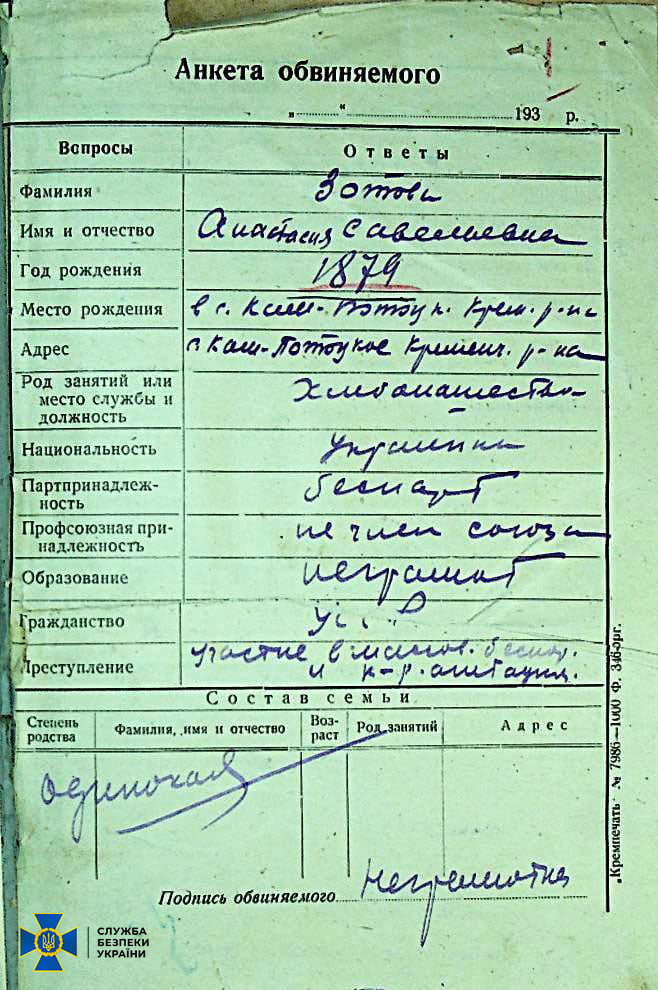 Анкета обвиняемого
„ “ 193 р.
Вопросы Ответы
Фамилия Зотова
Имя и отчество Анастасия Савельевна
Год рождения 1879
Место рождения в с. Кам-Поток. Крем. р-на
Адрес с. Кам-Потоцкое Кременч. р-на
Род занятий или место службы и должность Хлебопашество
Национальность украинка
Партпринадлежность беспарт
Профсоюзная принадлежность не член союза
Образование неграмот
Гражданство
Преступление участие в массов. беспор.
и к-р. агитация.
Состав семьи
Степень родства Фамилия, имя и отчество Возраст Род занятий Адрес
одинокая
Подпись обвиняемого Неграмотна
„Кремпечать“ № 7986—1000 Ф. 346-орг.
СЛУЖБА
БЕЗПЕКИ
УКРАЇНИ